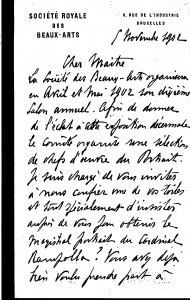 SOCIÉTÉ ROYALE
DES
BEAUX-ARTS
8, RUE DE L'INDUSTRIE
BRUXELLES
5 Novembre 1902
Cher Maître
La Société des Beaux-Arts organisera
en Avril et Mai 1902 son dixième
Salon annuel. Afin de donner
de l'éclat à cette exposition décennale
le comité organise une sélection
de chefs d'œuvre du Portrait.
Je suis chargé de vous inviter
à nous confier une de vos toiles
et tout spécialement d'insister
auprès de vous pour obtenir le
magistral portrait du Cardinal
Rampolla? Vous avez déjà
bien voulu prendre part à